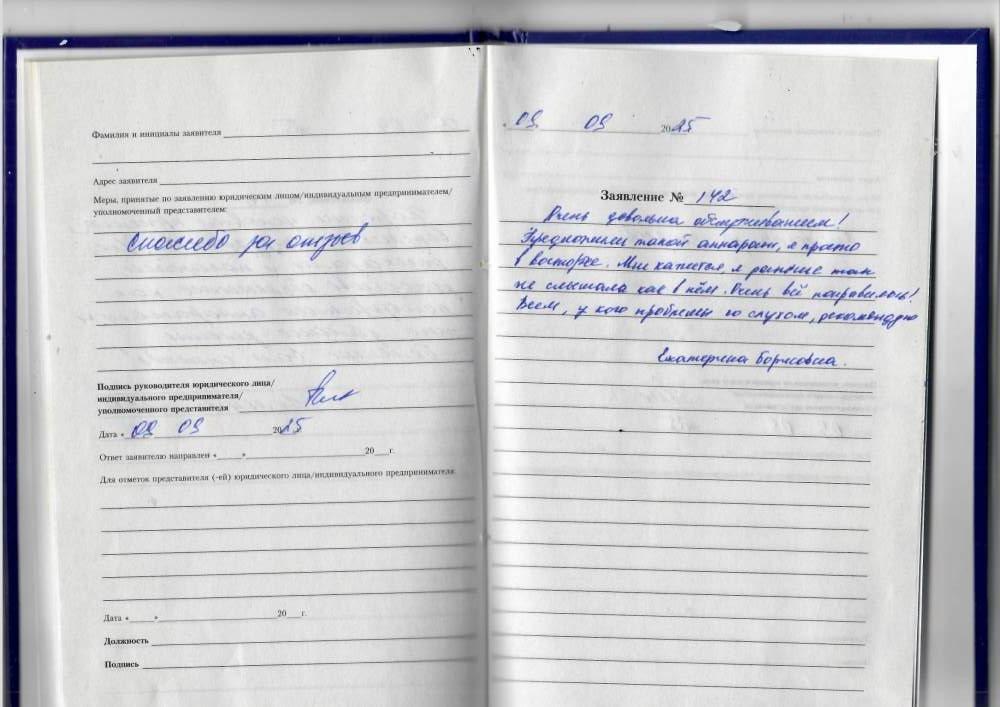 Фамилия и инициалы заявителя
Адрес заявителя
Меры, принятые по заявлению юридическим лицом/индивидуальным предпринимателем/
уполномоченный представителем:
Спасибо за отзыв
Подпись руководителя юридического лица/
индивидуального предпринимателя/
уполномоченного представителя
Дата « 09 09 2025
Ответ заявителю направлен «____» 20__г.
Для отметок представителя (-ей) юридического лица/индивидуального предпринимателя
Дата «____» 20__г.
Должность
Подпись
09 09 2025
Заявление № 142
Очень довольна обслуживанием!
Предложили такой аппарат, я просто
в восторге. Мне кажется, я раньше так
не слышала как в нём. Очень всё понравилось!
Всем, у кого проблемы со слухом, рекомендую
Екатерина Борисовна.